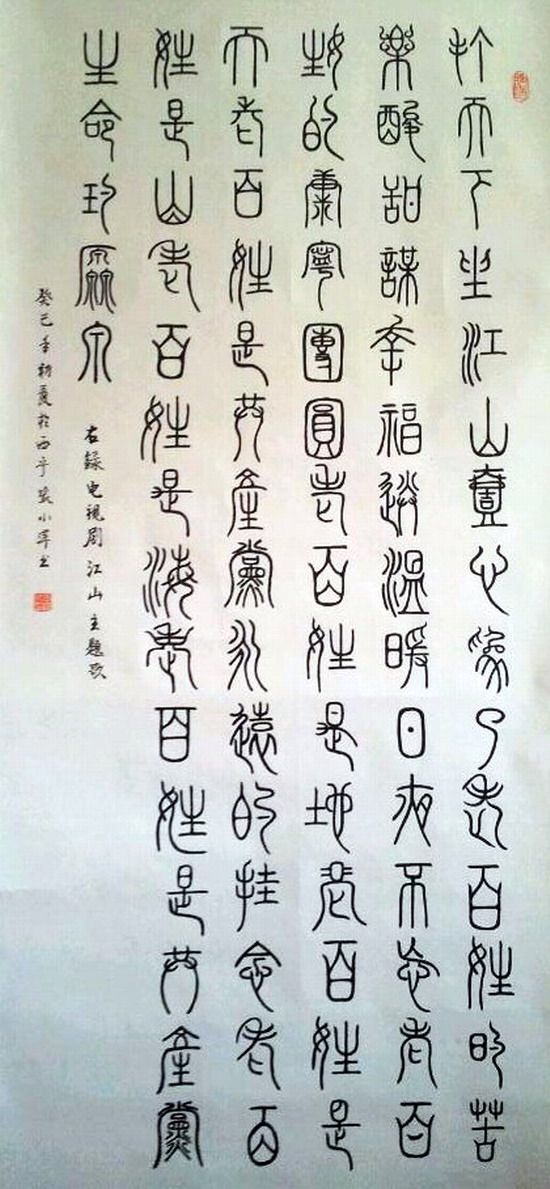 打天下坐江山壹心為了老百姓的苦
樂酸甜謀幸福送溫暖日夜不忘老百
姓的康寧團圓老百姓是地老百姓是
天老百姓是共產黨永遠的挂念老百
姓是山老百姓是海老百姓是共產黨
生命的厵泉
右録电視剧江山主題歌
癸巳年初夏於西宁小書